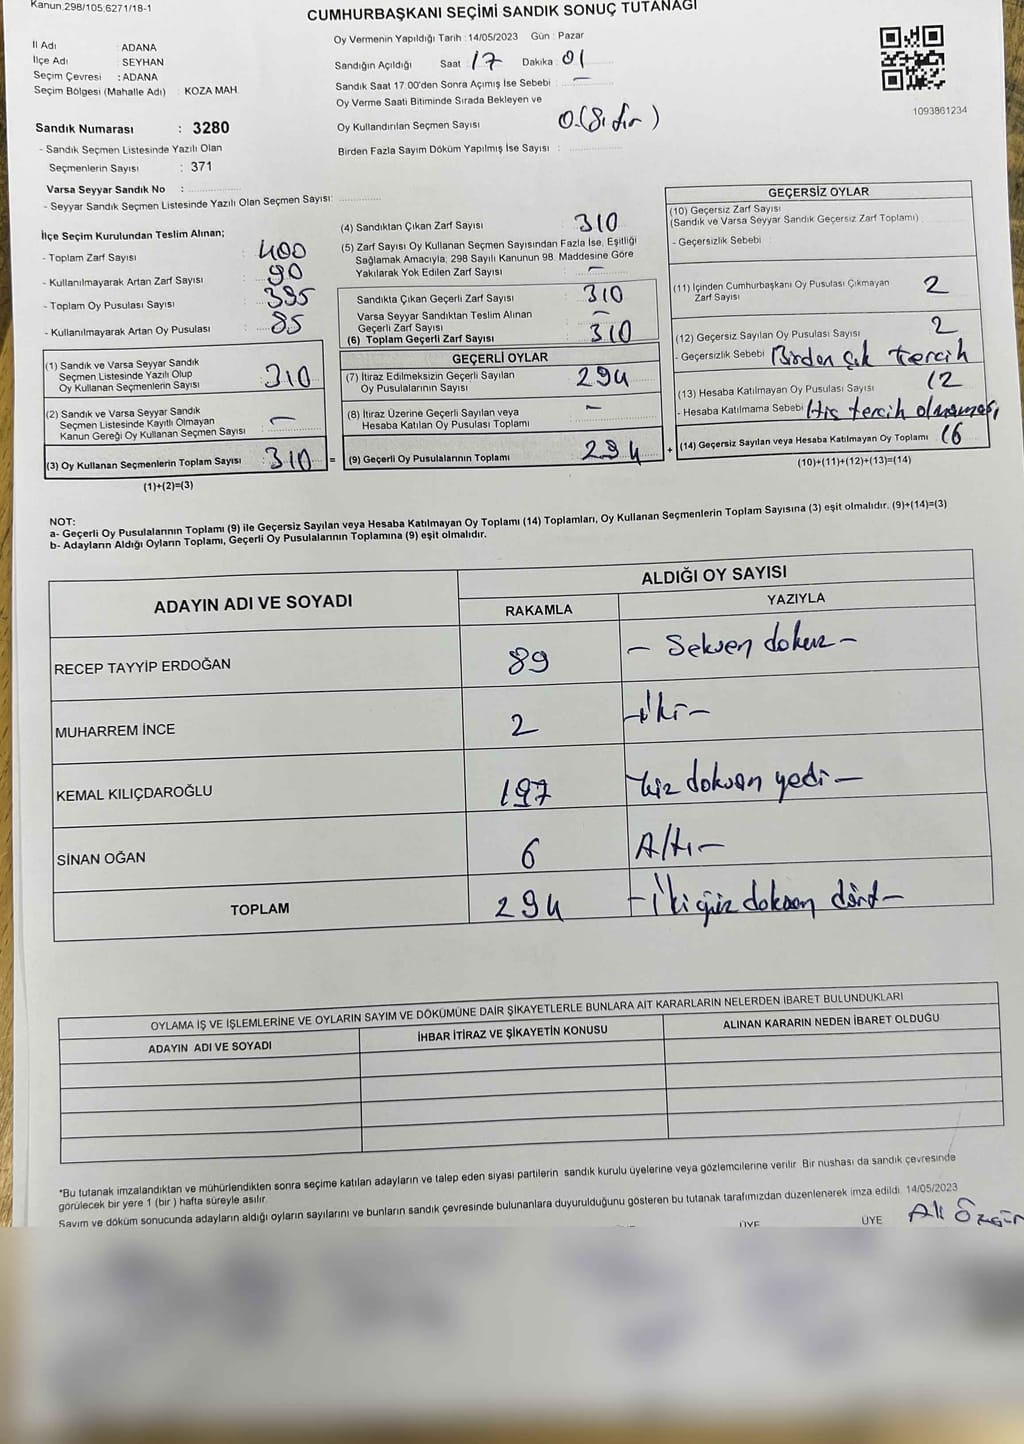 Kanun;298/105;6271/18-1
CUMHURBAŞKANI SEÇİMİ SANDIK SONUÇ TUTANAĞI
İl Adı : ADANA
İlçe Adı SEYHAN
Seçim Çevresi : ADANA
Seçim Bölgesi (Mahalle Adı) : KOZA MAH.
Sandık Numarası : 3280
- Sandık Seçmen Listesinde Yazılı Olan
Seçmenlerin Sayısı : 371
Varsa Seyyar Sandık No :
- Seyyar Sandık Seçmen Listesinde Yazılı Olan Seçmen Sayısı:
Oy Vermenin Yapıldığı Tarih : 14/05/2023 Gün : Pazar
Sandığın Açıldığı Saat : 17 Dakika : 01
Sandık Saat 17.00'den Sonra Açımış İse Sebebi : -
Oy Verme Saati Bitiminde Sırada Bekleyen ve
Oy Kullandırılan Seçmen Sayısı 0.(Sıfır)
Birden Fazla Sayım Döküm Yapılmış İse Sayısı :
1093861234
İlçe Seçim Kurulundan Teslim Alınan;
- Toplam Zarf Sayısı : 400
- Kullanılmayarak Artan Zarf Sayısı : 90
- Toplam Oy Pusulası Sayısı : 395
- Kullanılmayarak Artan Oy Pusulası : 85
(1) Sandık ve Varsa Seyyar Sandık
Seçmen Listesinde Yazılı Olup
Oy Kullanan Seçmenlerin Sayısı : 310
(2) Sandık ve Varsa Seyyar Sandık
Seçmen Listesinde Kayıtlı Olmayan
Kanun Gereği Oy Kullanan Seçmen Sayısı : -
(3) Oy Kullanan Seçmenlerin Toplam Sayısı : 310 =
(1)+(2)=(3)
(4) Sandıktan Çıkan Zarf Sayısı : 310
(5) Zarf Sayısı Oy Kullanan Seçmen Sayısından Fazla İse, Eşitliği
Sağlamak Amacıyla, 298 Sayılı Kanunun 98. Maddesine Göre
Yakılarak Yok Edilen Zarf Sayısı : -
Sandıkta Çıkan Geçerli Zarf Sayısı : 310
Varsa Seyyar Sandıktan Teslim Alınan
Geçerli Zarf Sayısı : -
(6) Toplam Geçerli Zarf Sayısı : 310
GEÇERLİ OYLAR
(7) İtiraz Edilmeksizin Geçerli Sayılan
Oy Pusulalarının Sayısı : 294
(8) İtiraz Üzerine Geçerli Sayılan veya
Hesaba Katılan Oy Pusulası Toplamı : -
(9) Geçerli Oy Pusulalarının Toplamı : 294 +
GEÇERSİZ OYLAR
(10) Geçersiz Zarf Sayısı
(Sandık ve Varsa Seyyar Sandık Geçersiz Zarf Toplamı) :
- Geçersizlik Sebebi :
(11) İçinden Cumhurbaşkanı Oy Pusulası Çıkmayan
Zarf Sayısı : 2
(12) Geçersiz Sayılan Oy Pusulası Sayısı : 2
- Geçersizlik Sebebi Birden çok tercih
(13) Hesaba Katılmayan Oy Pusulası Sayısı : 12
- Hesaba Katılmama Sebebi : Hiç tercih olmaması
(14) Geçersiz Sayılan veya Hesaba Katılmayan Oy Toplamı : 16
(10)+(11)+(12)+(13)=(14)
NOT:
a- Geçerli Oy Pusulalarının Toplamı (9) ile Geçersiz Sayılan veya Hesaba Katılmayan Oy Toplamı (14) Toplamları, Oy Kullanan Seçmenlerin Toplam Sayısına (3) eşit olmalıdır. (9)+(14)=(3)
b- Adayların Aldığı Oyların Toplamı, Geçerli Oy Pusulalarının Toplamına (9) eşit olmalıdır.
ADAYIN ADI VE SOYADI
ALDIĞI OY SAYISI
RAKAMLA YAZIYLA
RECEP TAYYİP ERDOĞAN 89 - Seksen dokuz -
MUHARREM İNCE 2 - iki -
KEMAL KILIÇDAROĞLU 197 - Yüz doksan yedi -
SİNAN OĞAN 6 Altı -
TOPLAM 294 - İki yüz doksan dört -
OYLAMA İŞ VE İŞLEMLERİNE VE OYLARIN SAYIM VE DÖKÜMÜNE DAİR ŞİKAYETLERLE BUNLARA AİT KARARLARIN NELERDEN İBARET BULUNDUKLARI
ADAYIN ADI VE SOYADI İHBAR İTİRAZ VE ŞİKAYETİN KONUSU ALINAN KARARIN NEDEN İBARET OLDUĞU
*Bu tutanak imzalandıktan ve mühürlendikten sonra seçime katılan adayların ve talep eden siyasi partilerin sandık kurulu üyelerine veya gözlemcilerine verilir. Bir nüshası da sandık çevresinde
görülecek bir yere 1 (bir ) hafta süreyle asılır.
Sayım ve döküm sonucunda adayların aldığı oyların sayılarını ve bunların sandık çevresinde bulunanlara duyurulduğunu gösteren bu tutanak tarafımızdan düzenlenerek imza edildi. 14/05/2023
ÜYE ÜYE Ali Özgür